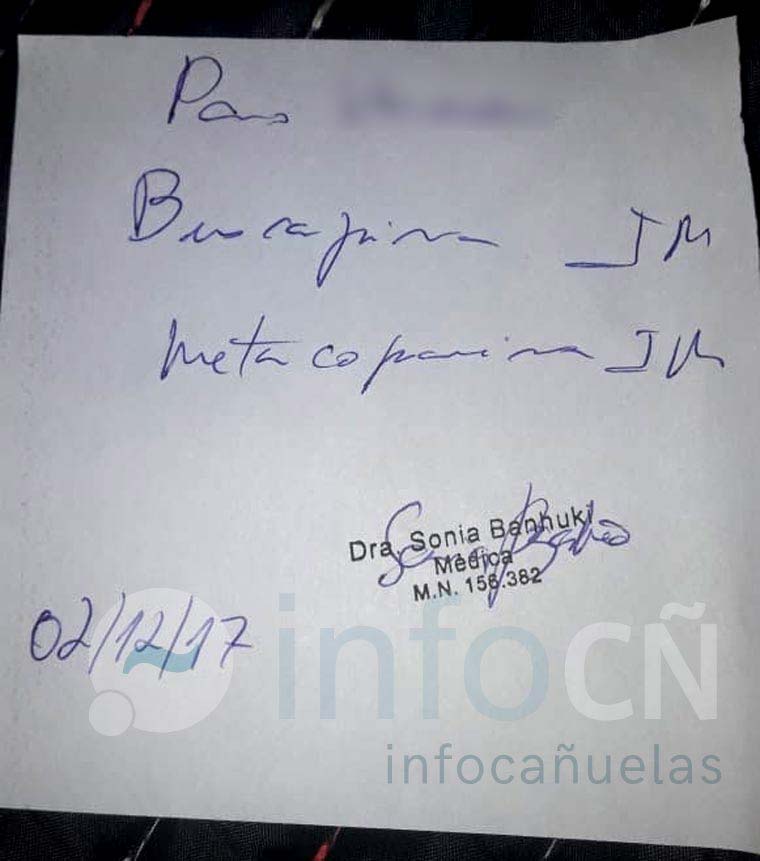 Para
Buscapina IM
Metacoparina IM
Dra. Sonia Banhuk
Médica
M.N. 156.382
02/12/17
infoCÑ
infocañuelas